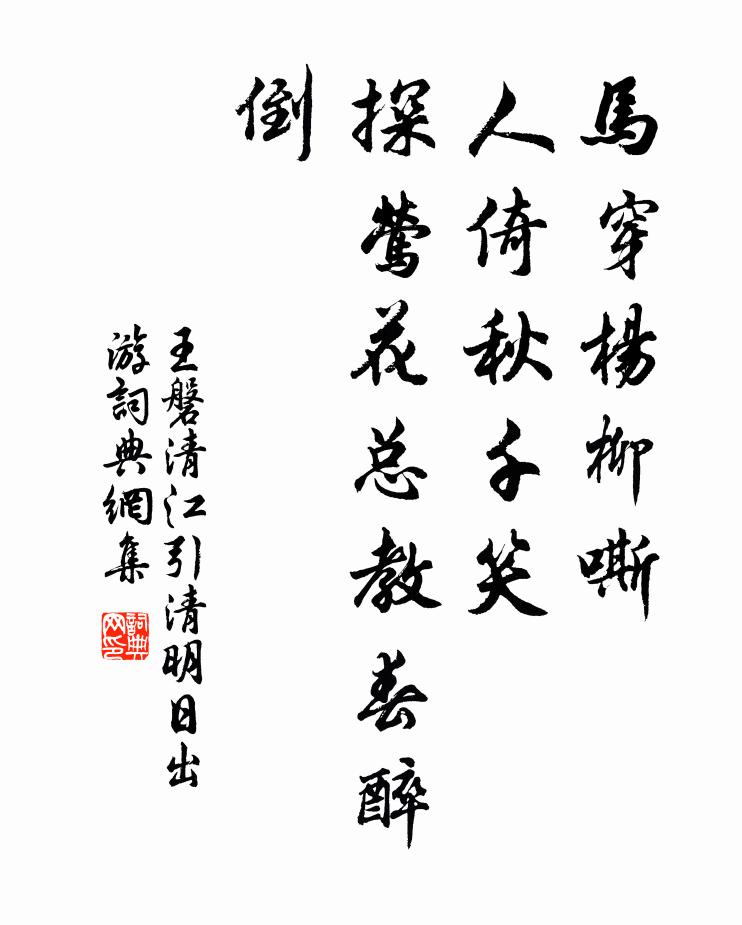 馬穿楊柳嘶
人倚秋千笑
探鶯花总教春醉
倒
王磐清江引清明日出
游詞典網集
詞典
网印